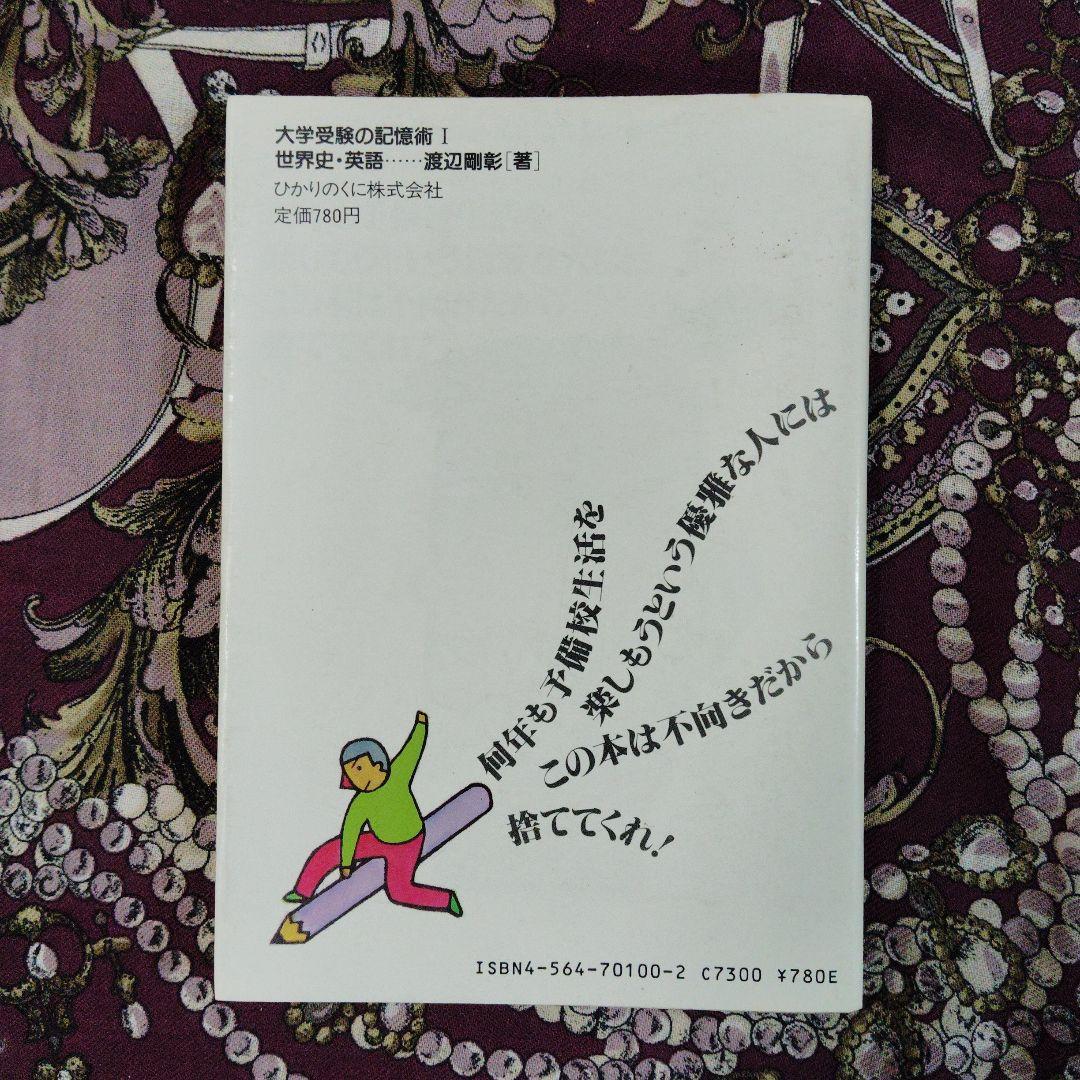 大学受験の記憶術 I
世界史・英語……渡辺剛彰[著]
ひかりのくに株式会社
定価780円
何年も予備校生活を
楽しもうという優雅な人には
この本は不向きだから
捨ててくれ!
ISBN4-564-70100-2 C7300 ¥780E